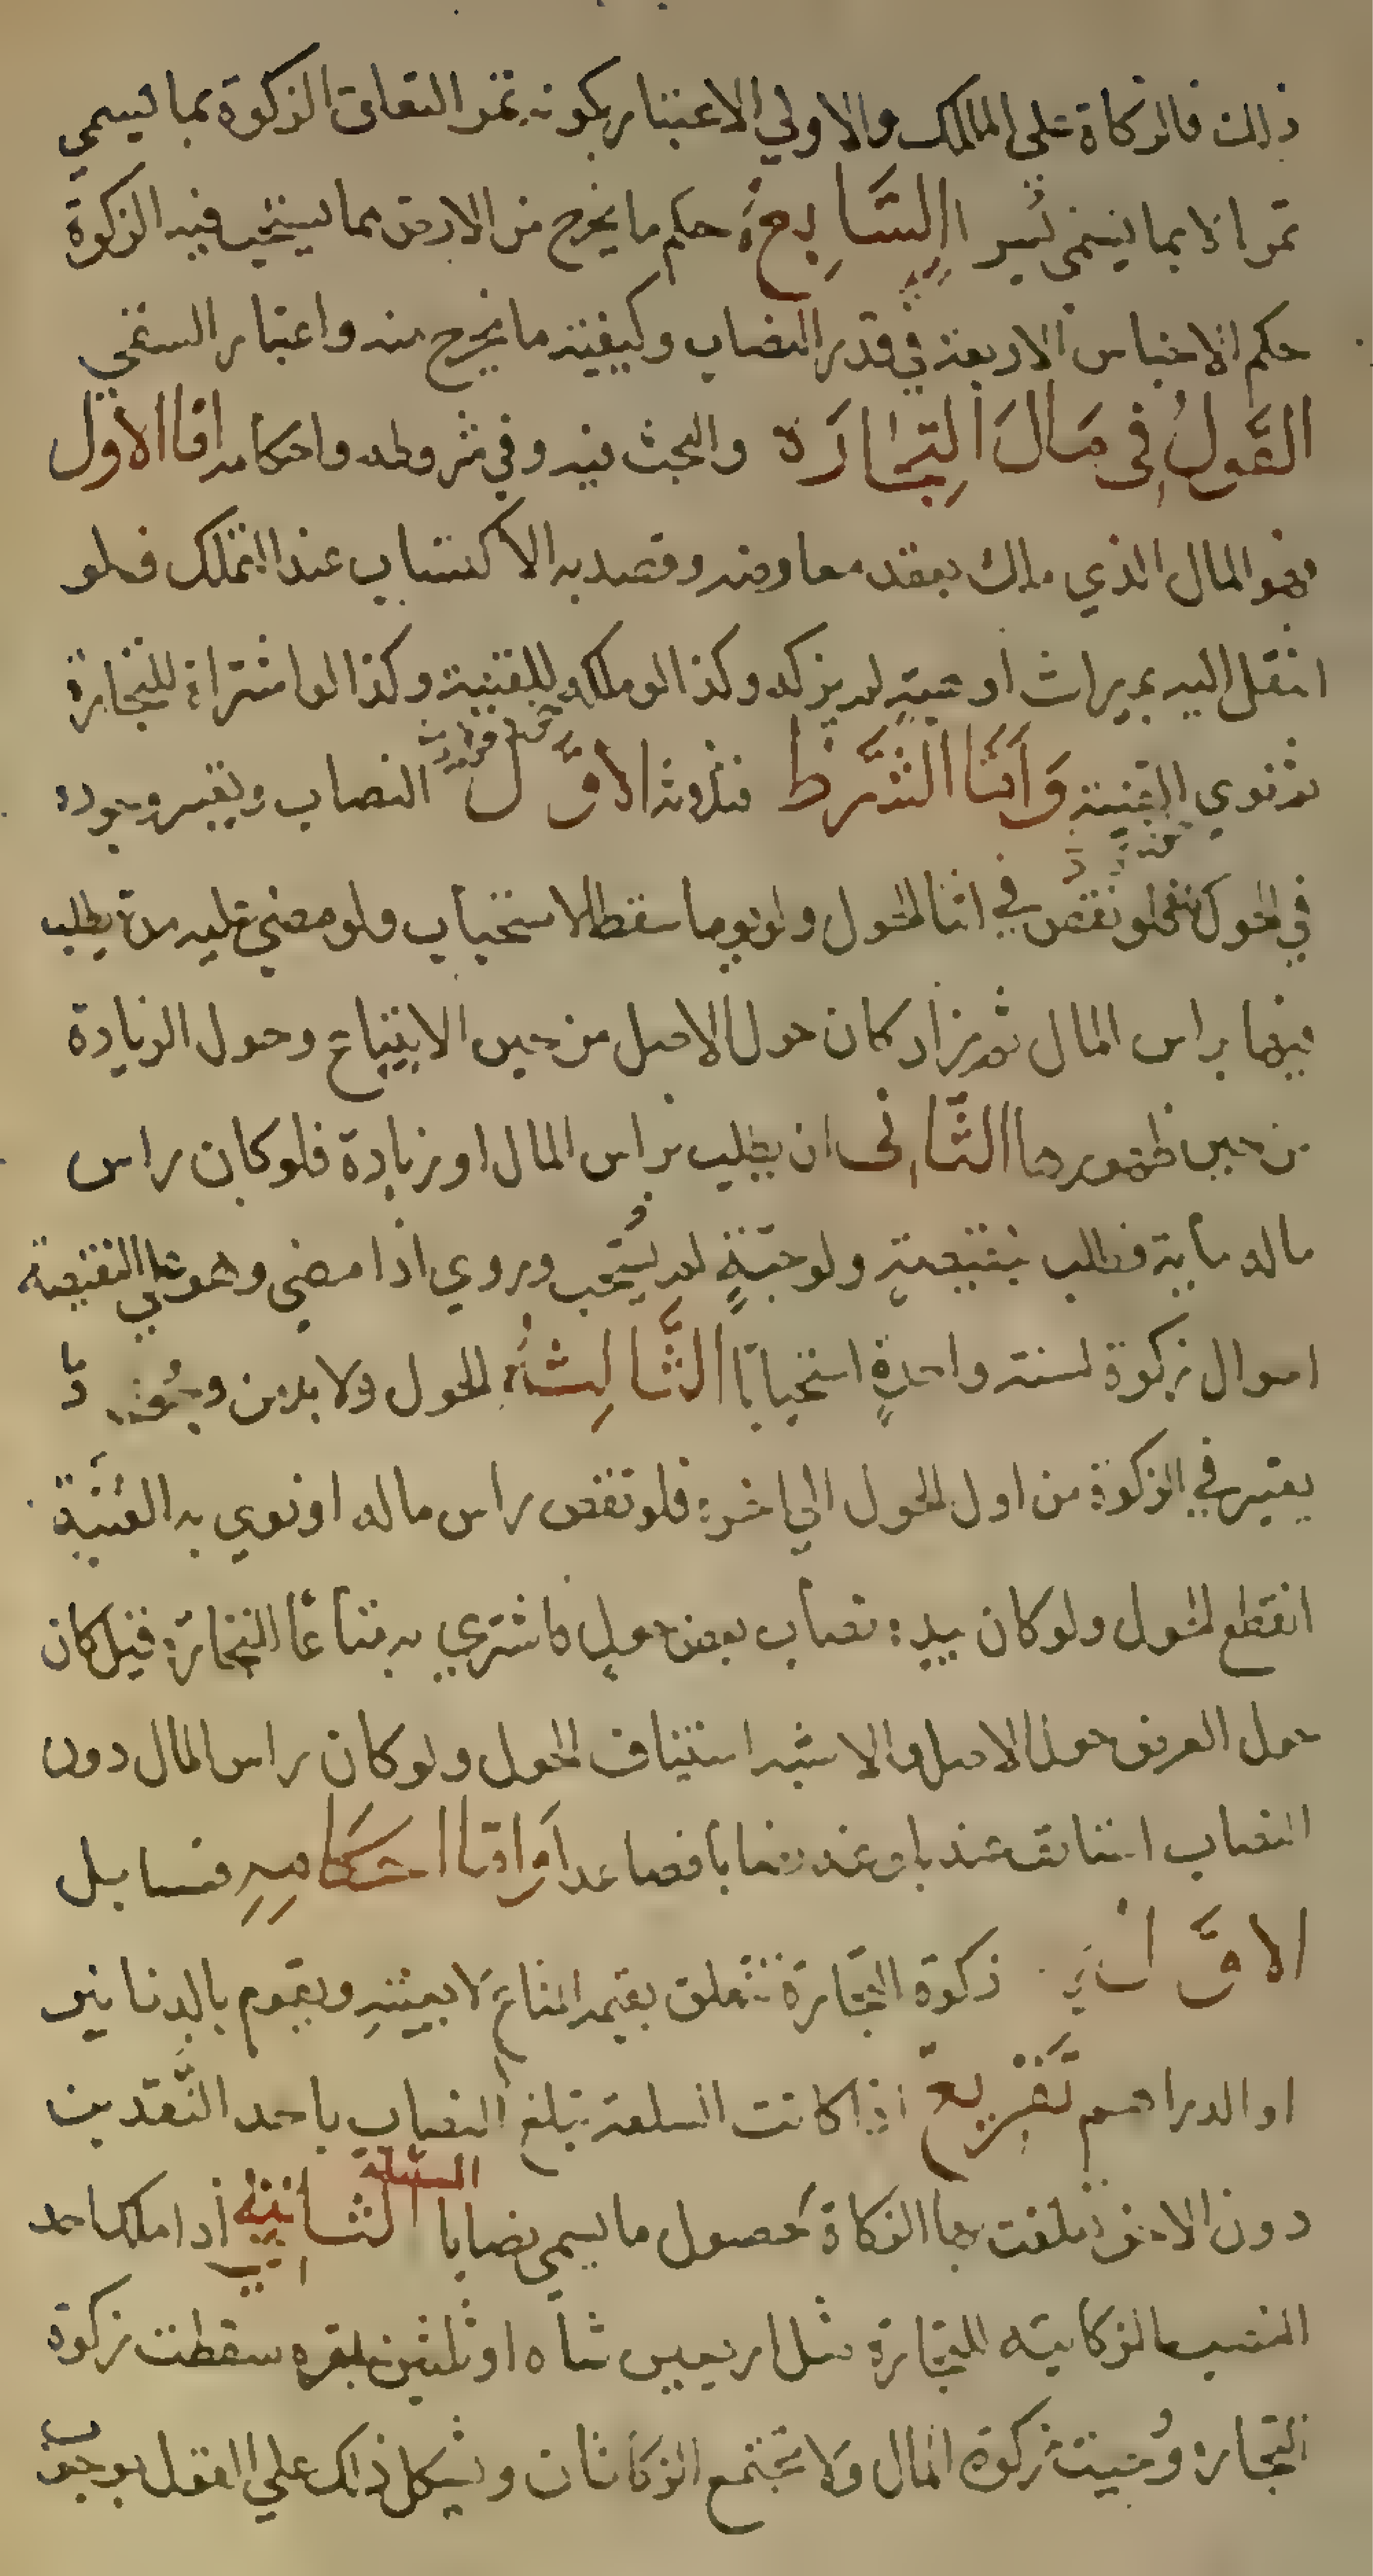 ذلك فالزكاة على المالك والاولي الاعتبار بكونه تمرا لتعلق الزكوة بما ليسمي
تمرا لا بما يسمي بسرا السَّابِعَةُ حكم ما يخرج من الارض مما يستحب فيه الزكوة
حكم الاجناس الاربعة في قدر النصاب وكيفية ما يخرج منه واعتبار السقي
القَولُ فِى مَالَ التِجَارَة والبحث فيه وفي شروطه واحكامه اما الاول
فهو المال الذي ملك بعقد معاوضه وقصد به الاكتساب عند التملك فلو
انتقل اليه بميراث او هبةٍ لم يزكه وكذا لو ملكه للقنية وكذا لو اشتراه للتجارة
ثم نوي القنية وَأمَّا الشَّرط فثلاثه الاوَّل النصاب ويعتبر وجوده
في الحول كله فلو نقص في اثنا الحول ولو يوما سقط الاستحباب ولو مضي عليه مدة يطلب
فيها براس المال ثم زاد كان حول الاصل من حين الابتياع وحول الزيادة
من حين ظهورها الثَّانى ان يطلب براس المال او زيادة فلو كان راس
ماله ماية فطلب بنقيصةٍ ولو حبّةٍ لم يُستحب وروي اذا مضي وهو علي النقيصة
احوال زكوة لسنة واحدةٍ استحبابًا الثَّالِثَهُ الحول ولا بد من وجُود ما
يعتبر في الزكوة من اول الحول الي اخره فلو نقص راس ماله او نوي به القُنْية
انقطع الحول ولو كان بيده نصاب بعض حول فاشتري به متاعًا للتجارة قيل كان
حول العرض حول الاصل والاشبه استيناف الحول ولو كان راس المال دون
النصاب استانف عند بلوغه نصابا فصاعدا وَامّا احكَامِهِ فمسايل
الاوَّلي زكوة التّجارة تتعلق بقيمة المتاع لا بعينه ويقوم بالدنانير
او الدراهم تَفْرِيعٌ اذا كانت السلعة تبلغ النصاب باحد النَّقدين
دون الاخر تعلقت بها الزكاة لحصول ما يسمي نصابا المسئلة الثَانِيَه اذا ملك احد
النصب الزكايتة للتجّارة مثل اربعين شاه او ثلثين بقره سقطت زكوة
التجاره وُجبت زكوة المال وَلا تجتمع الزكاتان ويشكل ذلك علي القول بوجوب